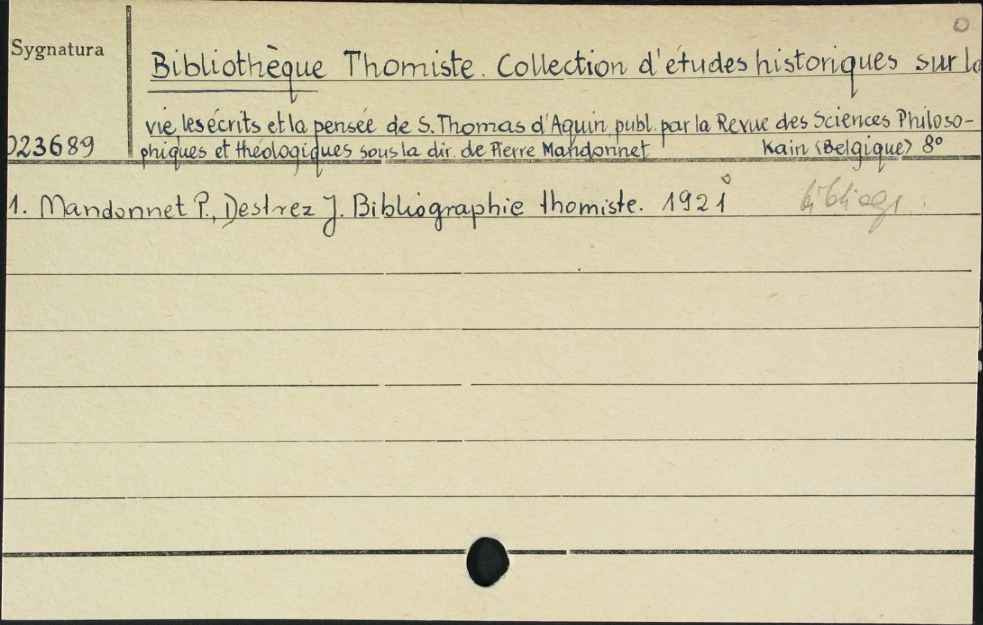 0
Sygnatura
Bibliothèque Thomiste. Collection d'études historiques sur la
vie, les écrits et la pensée de S. Thomas d'Aquin publ. par la Revue des Sciences Philoso-
023689
phiques et théologiques sous la dir. de Pierre Mandonnet Kain (Belgique) 8°
1. Mandonnet P., Destrez J. Bibliographie thomiste. 1921